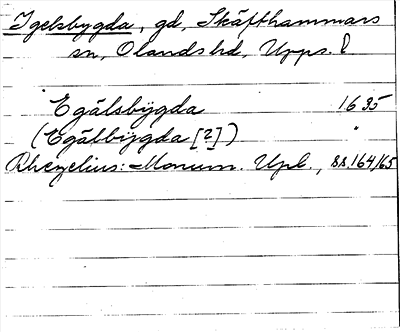 Igelsbygda, gd, Skäfthammars
sn, Olands hd, Upps. l
Egälsbÿgda 1635
(Egälbÿgda [?]) "
Rhezelius: Monum. Upl., ss 164/65